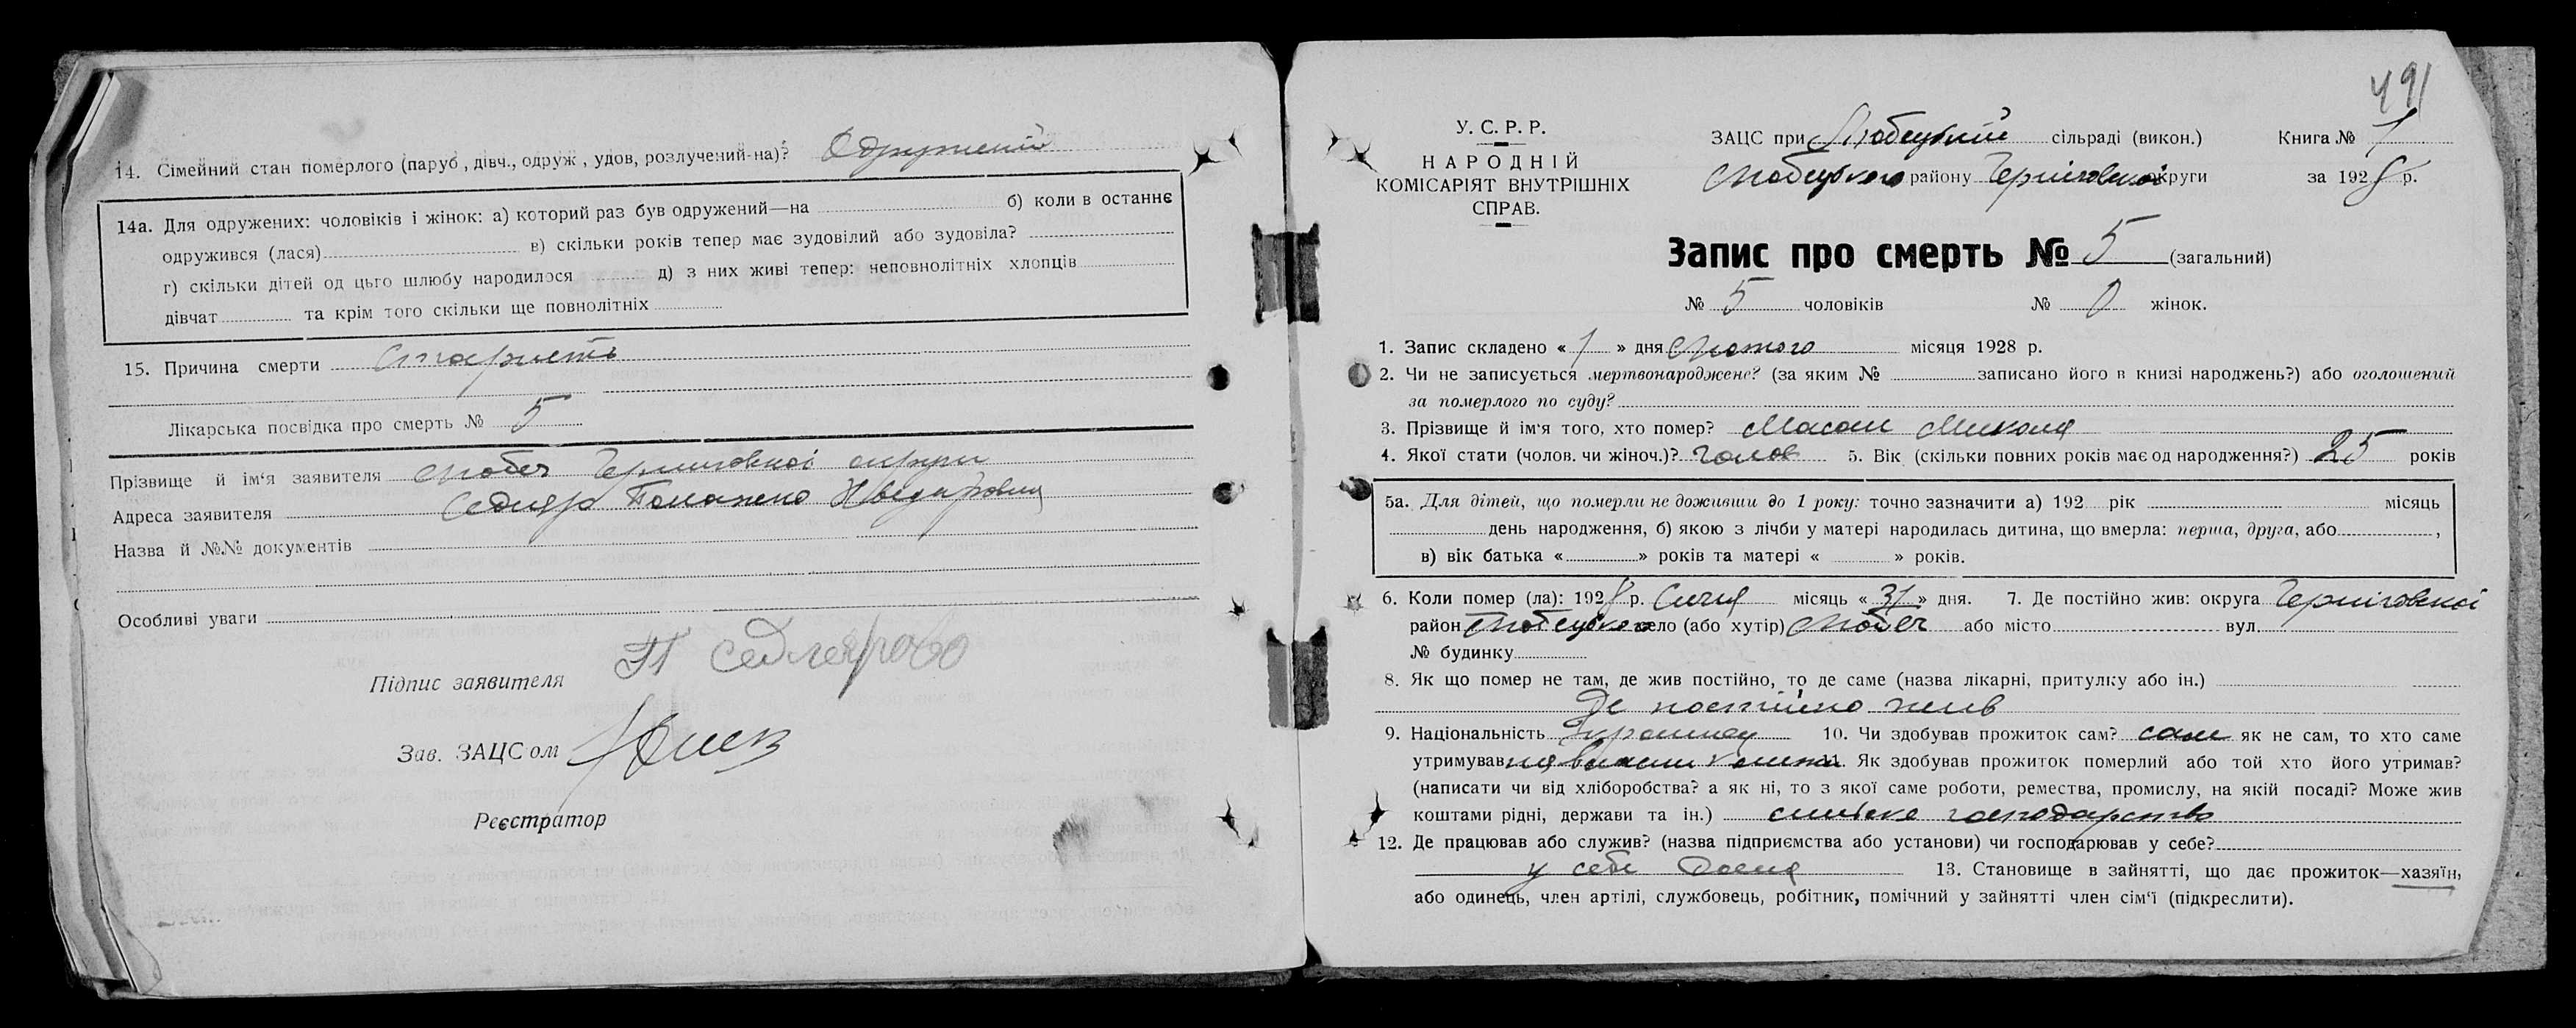 14. Сімейний стан померлого (паруб, дівч., одруж, удов, розлучений-на)? Одружений
14а. Для одружених: чоловіків і жінок: а) которий раз був одружений—на б) коли в останнє
одружився (лася) в) скільки років тепер має зудовілий або зудовіла?
г) скільки дітей од цьго шлюбу народилося д) з них живі тепер: неповнолітніх хлопців
дівчат та крім того скільки ще повнолітніх
15. Причина смерти старість
Лікарська посвідка про смерть № 5
Прізвище й ім'я заявителя Любеч Черниговскої округи
Адреса заявителя Седляр
Назва й №№ документів
Особливі уваги
Підпис заявителя П Седлярово
Зав. ЗАЦСом
Реєстратор
491
У. С. Р. Р.
НАРОДНІЙ
КОМІСАРІЯТ ВНУТРІШНІХ
СПРАВ.
ЗАЦС при Любецький сільраді (викон.) Книга № 1
Любецького району Черніговскої округи за 1928 р.
Запис про смерть № 5 (загальний)
№ 5 чоловіків № 0 жінок.
1. Запис складено « 1 » дня Лютого місяця 1928 р.
2. Чи не записується мертвонароджене? (за яким № записано його в книзі народжень?) або оголошений
за померлого по суду?
3. Прізвище й ім'я того, хто помер? Масам Микола
4. Якої стати (чолов. чи жіноч.)? Чолов 5. Вік (скільки повних років має од народження?) 25 років
5а. Для дітей, що померли не доживши до 1 року: точно зазначити а) 192 рік місяць
день народження, б) якою з лічби у матері народилась дитина, що вмерла: перша, друга, або ,
в) вік батька « » років та матері « » років.
6. Коли помер (ла): 1928 р. Січня місяць « 31 » дня. 7. Де постійно жив: округа Чернiговскої
район Любецького село (або хутір) Любеч або місто вул.
№ будинку
8. Як що помер не там, де жив постійно, то де саме (назва лікарні, притулку або ін.)
Де постійно жив
9. Національність Українец 10. Чи здобував прожиток сам? сам як не сам, то хто саме
утримував на власни кошти 11. Як здобував прожиток померлий або той хто його утримав?
(написати чи від хліборобства? а як ні, то з якої саме роботи, ремества, промислу, на якій посаді? Може жив
коштами рідні, держави та ін.) сільске господарство
12. Де працював або служив? (назва підприємства або установи) чи господарював у себе?
у себе дома 13. Становище в зайнятті, що дає прожиток—хазяїн,
або одинець, член артілі, службовець, робітник, помічний у зайнятті член сім'ї (підкреслити).